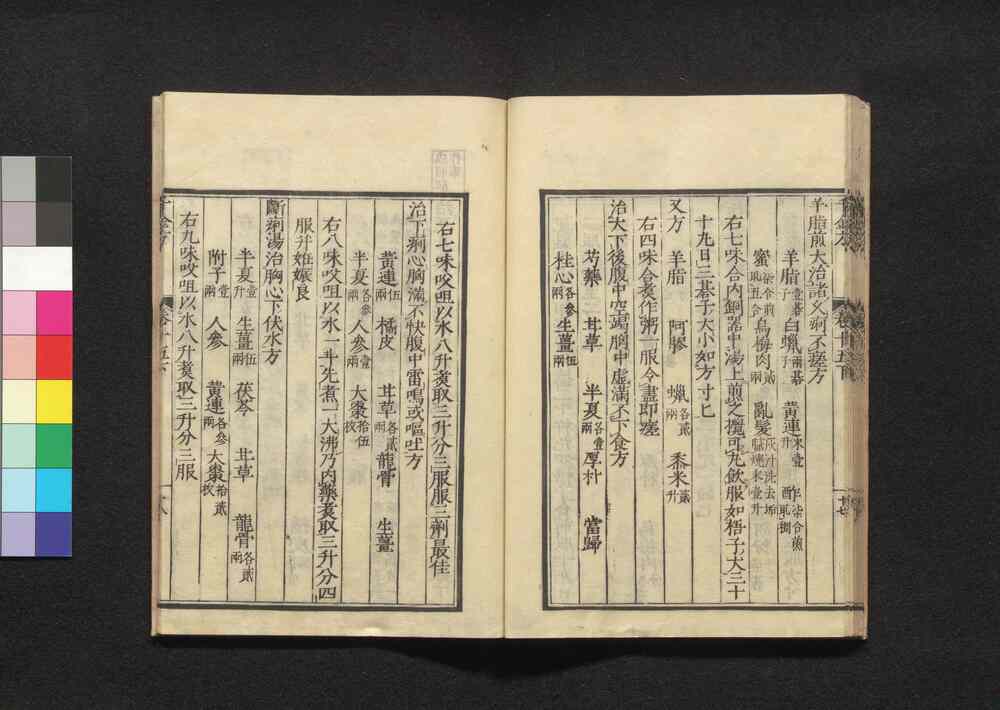 羊脂煎大治諸久痢不瘥方
羊脂 白蠟 黃連 酢
蜜 烏梅肉 亂髮
右七味合內銅器中湯上煎之攪可丸飲服如梧子大三十
十九日三棊子大小如方寸匕
又方 羊脂 阿膠 蠟各貳兩 黍米貳升
右四味合煮作粥一服令盡即瘥
治大下後腹中空竭胸中虛滿不下食方
芍藥 甘草 半夏各壹兩 厚朴 當歸
桂心各參兩 生薑伍兩
右七味㕮咀以水八升煑取三升分三服服三劑最佳
治下痢心胸滿不快腹中雷鳴或嘔吐方
黃連伍兩 橘皮 甘草各貳兩 龍骨 生薑
半夏各參兩 人參壹兩 大棗拾伍枚
右八味㕮咀以水一斗先煮一大沸乃內藥煑取三升分四
服并姙孃良
斷痢湯治胸心下伏水方
半夏壹升 生薑伍兩 茯苓 甘草 龍骨各貳兩
附子壹兩 人參 黃連各參兩 大棗拾貳枚
右九味㕮咀以水八升煑取三升分三服